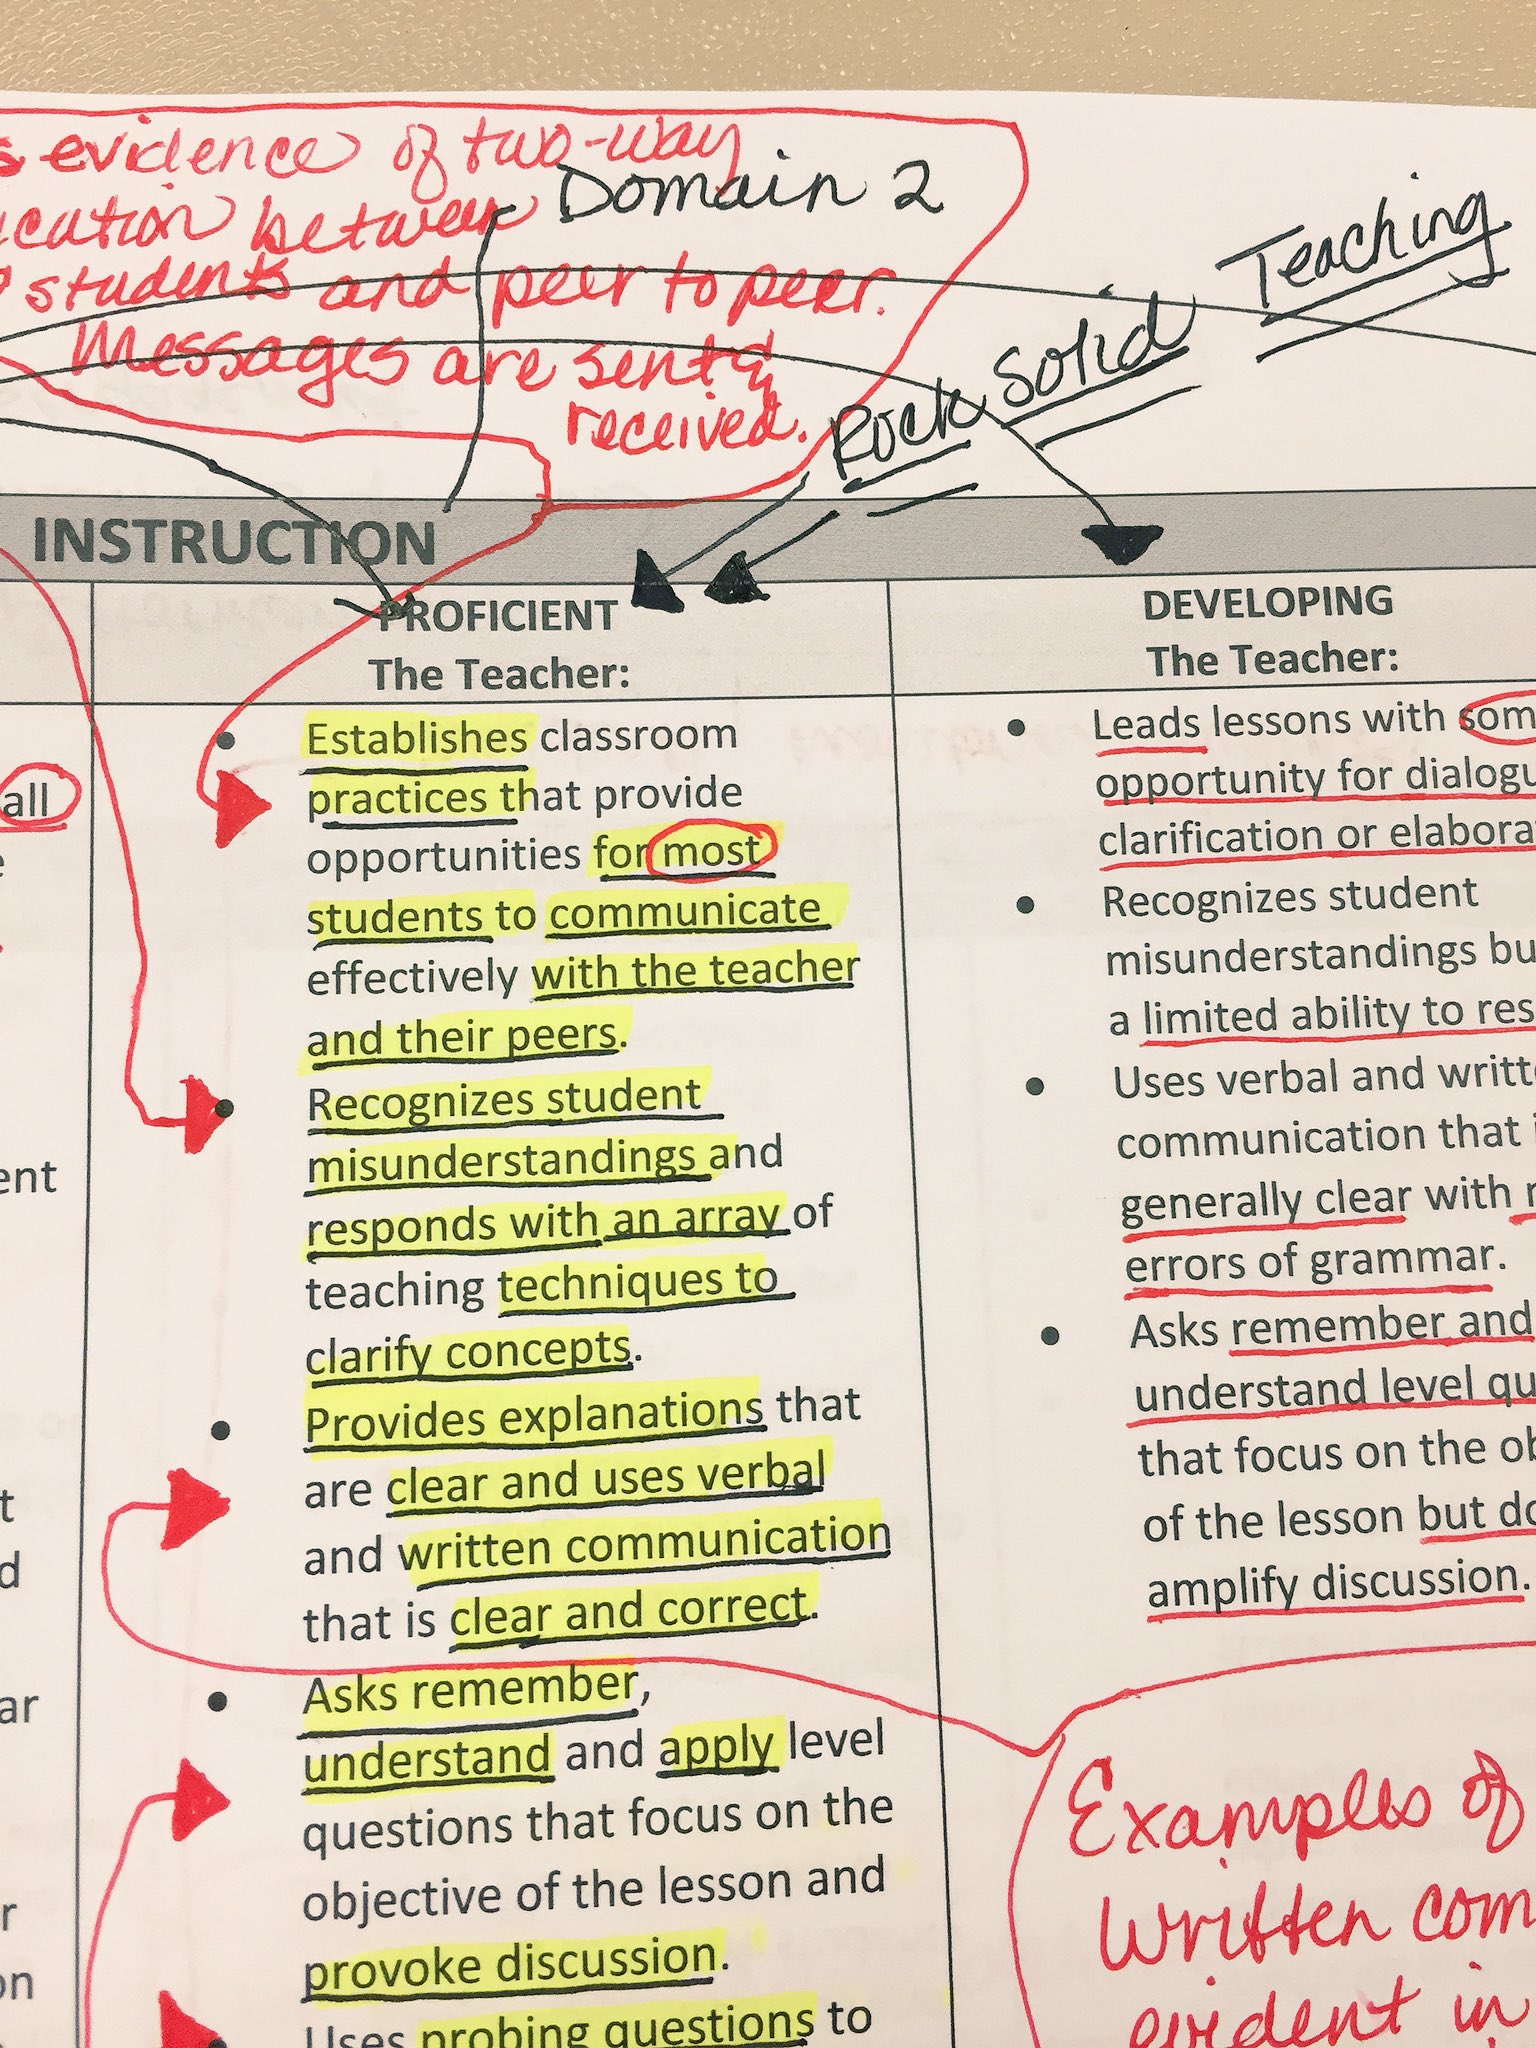 s evidence of two-way
ication between
students and peer to peer.
Messages are sent &
received.
Domain 2
Rock Solid Teaching
INSTRUCTION
all
ent
t
d
ar
r
on
PROFICIENT
The Teacher:
• Establishes classroom
practices that provide
opportunities for most
students to communicate
effectively with the teacher
and their peers.
• Recognizes student
misunderstandings and
responds with an array of
teaching techniques to
clarify concepts.
• Provides explanations that
are clear and uses verbal
and written communication
that is clear and correct.
• Asks remember,
understand and apply level
questions that focus on the
objective of the lesson and
provoke discussion.
• Uses probing questions to
DEVELOPING
The Teacher:
• Leads lessons with som
opportunity for dialogu
clarification or elabora
• Recognizes student
misunderstandings bu
a limited ability to res
• Uses verbal and writt
communication that i
generally clear with
errors of grammar.
• Asks remember and
understand level qu
that focus on the ob
of the lesson but do
amplify discussion.
Examples of
written com
evident in